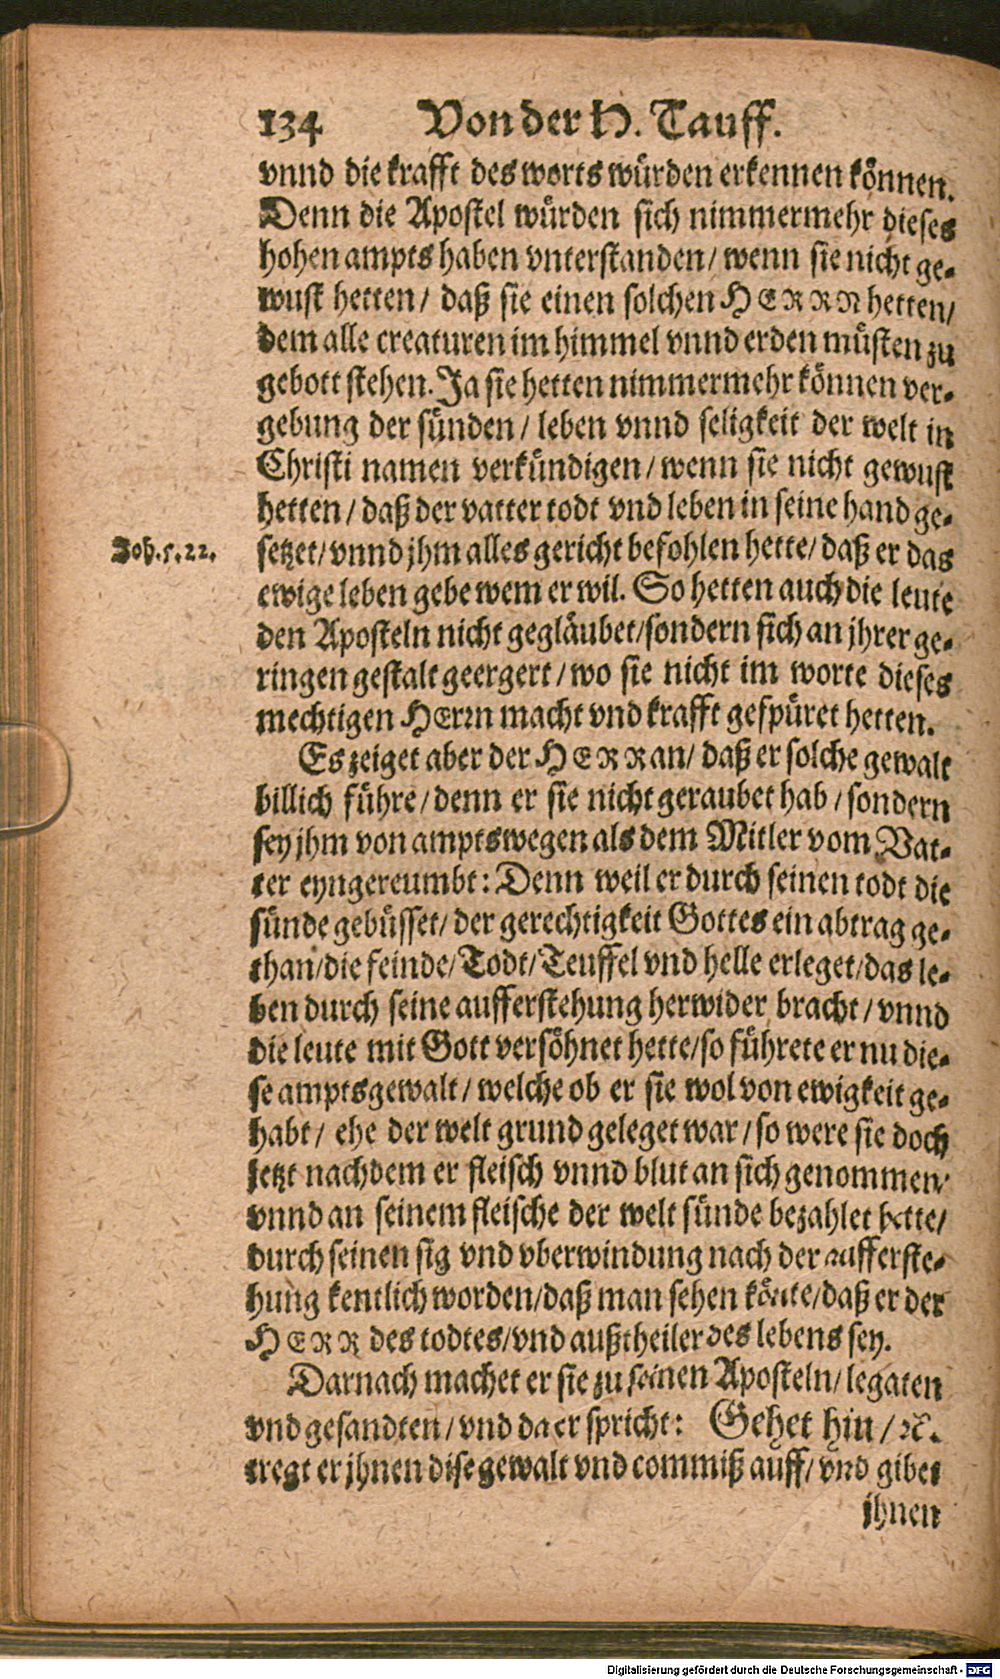 134 Von der H. Tauff.
vnnd die krafft des worts würden erkennen können.
Denn die Apostel würden sich nimmermehr dieses
hohen ampts haben vnterstanden/ wenn sie nicht ge-
wust hetten/ daß sie einen solchen HERRN hetten/
dem alle creaturen im himmel vnnd erden müsten zu
gebott stehen. Ja sie hetten nimmermehr können ver-
gebung der sünden/ leben vnnd seligkeit der welt in
Christi namen verkündigen/ wenn sie nicht gewust
hetten/ daß der vatter todt vnd leben in seine hand ge-
Joh.5.22.
setzet/ vnnd jhm alles gericht befohlen hette/ daß er das
ewige leben gebe wem er wil. So hetten auch die leute
den Aposteln nicht gegläubet/ sondern sich an jhrer ge-
ringen gestalt geergert/ wo sie nicht im worte dieses
mechtigen HErrn macht vnd krafft gespüret hetten.
Es zeiget aber der HERR an/ daß er solche gewalt
billich führe/ denn er sie nicht geraubet hab/ sondern
sey jhm von ampts wegen als dem Mitler vom Vat-
ter eyngereumbt: Denn weil er durch seinen todt die
sünde gebüsset/ der gerechtigkeit Gottes ein abtrag ge-
than/ die feinde/ Todt/ Teuffel vnd helle erleget/ das le-
ben durch seine aufferstehung herwider bracht/ vnnd
die leute mit Gott versöhnet hette/ so führete er nu die-
se amptsgewalt/ welche ob er sie wol von ewigkeit ge-
habt/ ehe der welt grund geleget war/ so were sie doch
jetzt nachdem er fleisch vnnd blut an sich genommen/
vnnd an seinem fleische der welt sünde bezahlet hette/
durch seinen sig vnd vberwindung nach der aufferste-
hung kentlich worden/ daß man sehen könte/ daß er der
HERR des todtes/ vnd außtheiler des lebens sey.
Darnach machet er sie zu seinen Aposteln/ legaten
vnd gesandten/ vnd da er spricht: Gehet hin/ ꝛc.
tregt er jhnen dise gewalt vnd commiß auff/ vnd gibet
jhnen
Digitalisierung gefördert durch die Deutsche Forschungsgemeinschaft - DFG